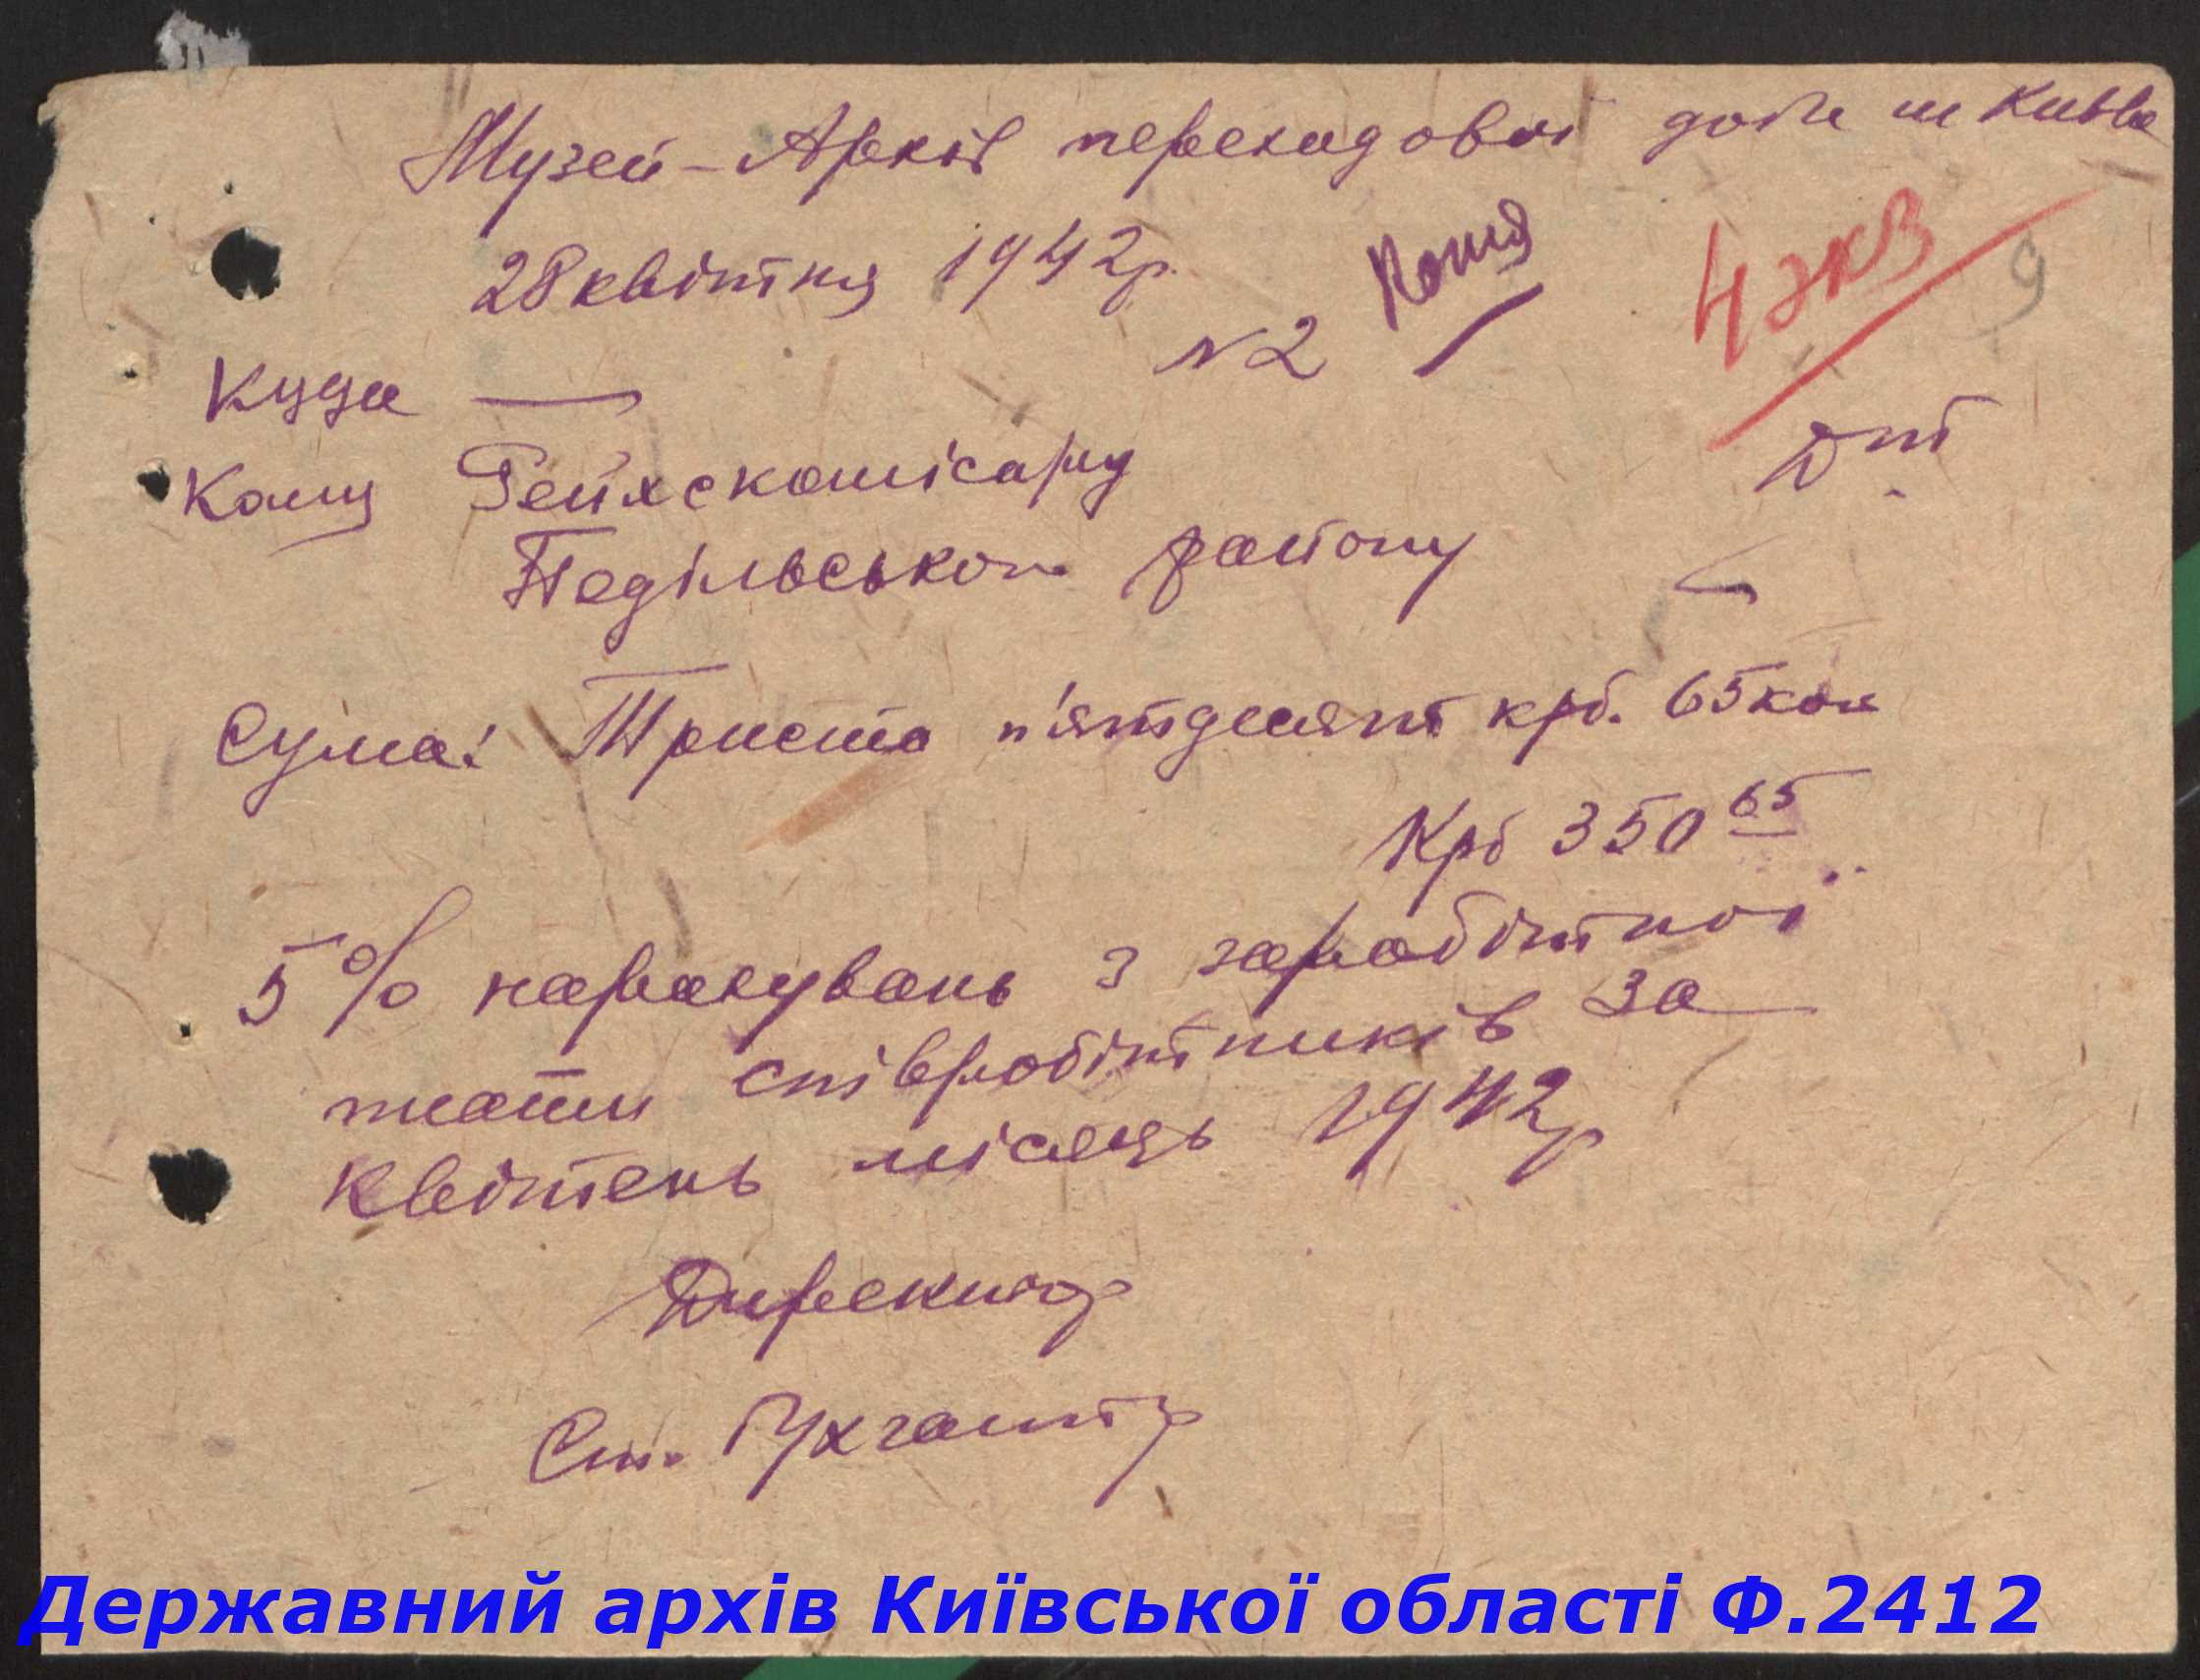 Музей-Архів переходової доби м Київа
28 квітня 1942р.
Копія
4 экз
9
№2
Куди —
Кому Рейхскомісару
Подільського району
Сума: Триста п'ятдесят крб. 65 коп
Крб 350 65
5% нарахувань з заробітної
платні співробітників за
Квітень місяць 1942р
Директор
Ст. Бухгалтер
Державний архів Київської області Ф.2412